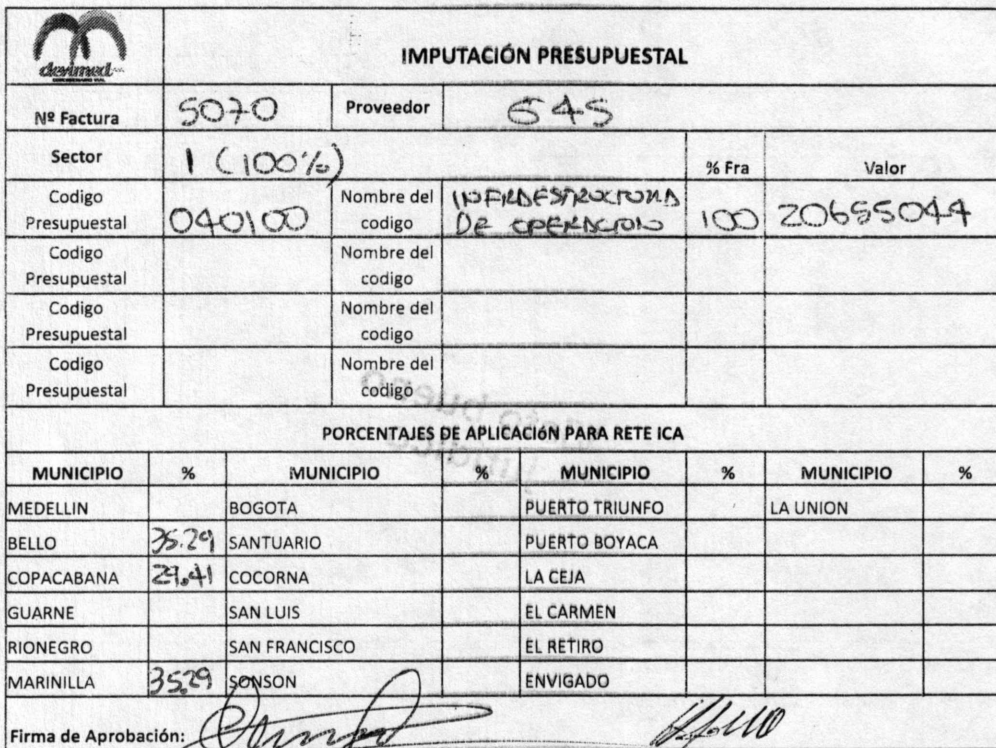 devimed
IMPUTACIÓN PRESUPUESTAL
Nº Factura 5070 Proveedor 545
Sector 1 (100%) % Fra Valor
Codigo Presupuestal 040100 Nombre del codigo INFRAESTRUCTURA DE OPERACION 100 20655044
Codigo Presupuestal Nombre del codigo
Codigo Presupuestal Nombre del codigo
Codigo Presupuestal Nombre del codigo
PORCENTAJES DE APLICACIóN PARA RETE ICA
MUNICIPIO % MUNICIPIO % MUNICIPIO % MUNICIPIO %
MEDELLIN BOGOTA PUERTO TRIUNFO LA UNION
BELLO 35.29 SANTUARIO PUERTO BOYACA
COPACABANA 29.41 COCORNA LA CEJA
GUARNE SAN LUIS EL CARMEN
RIONEGRO SAN FRANCISCO EL RETIRO
MARINILLA 35.29 SONSON ENVIGADO
Firma de Aprobación: